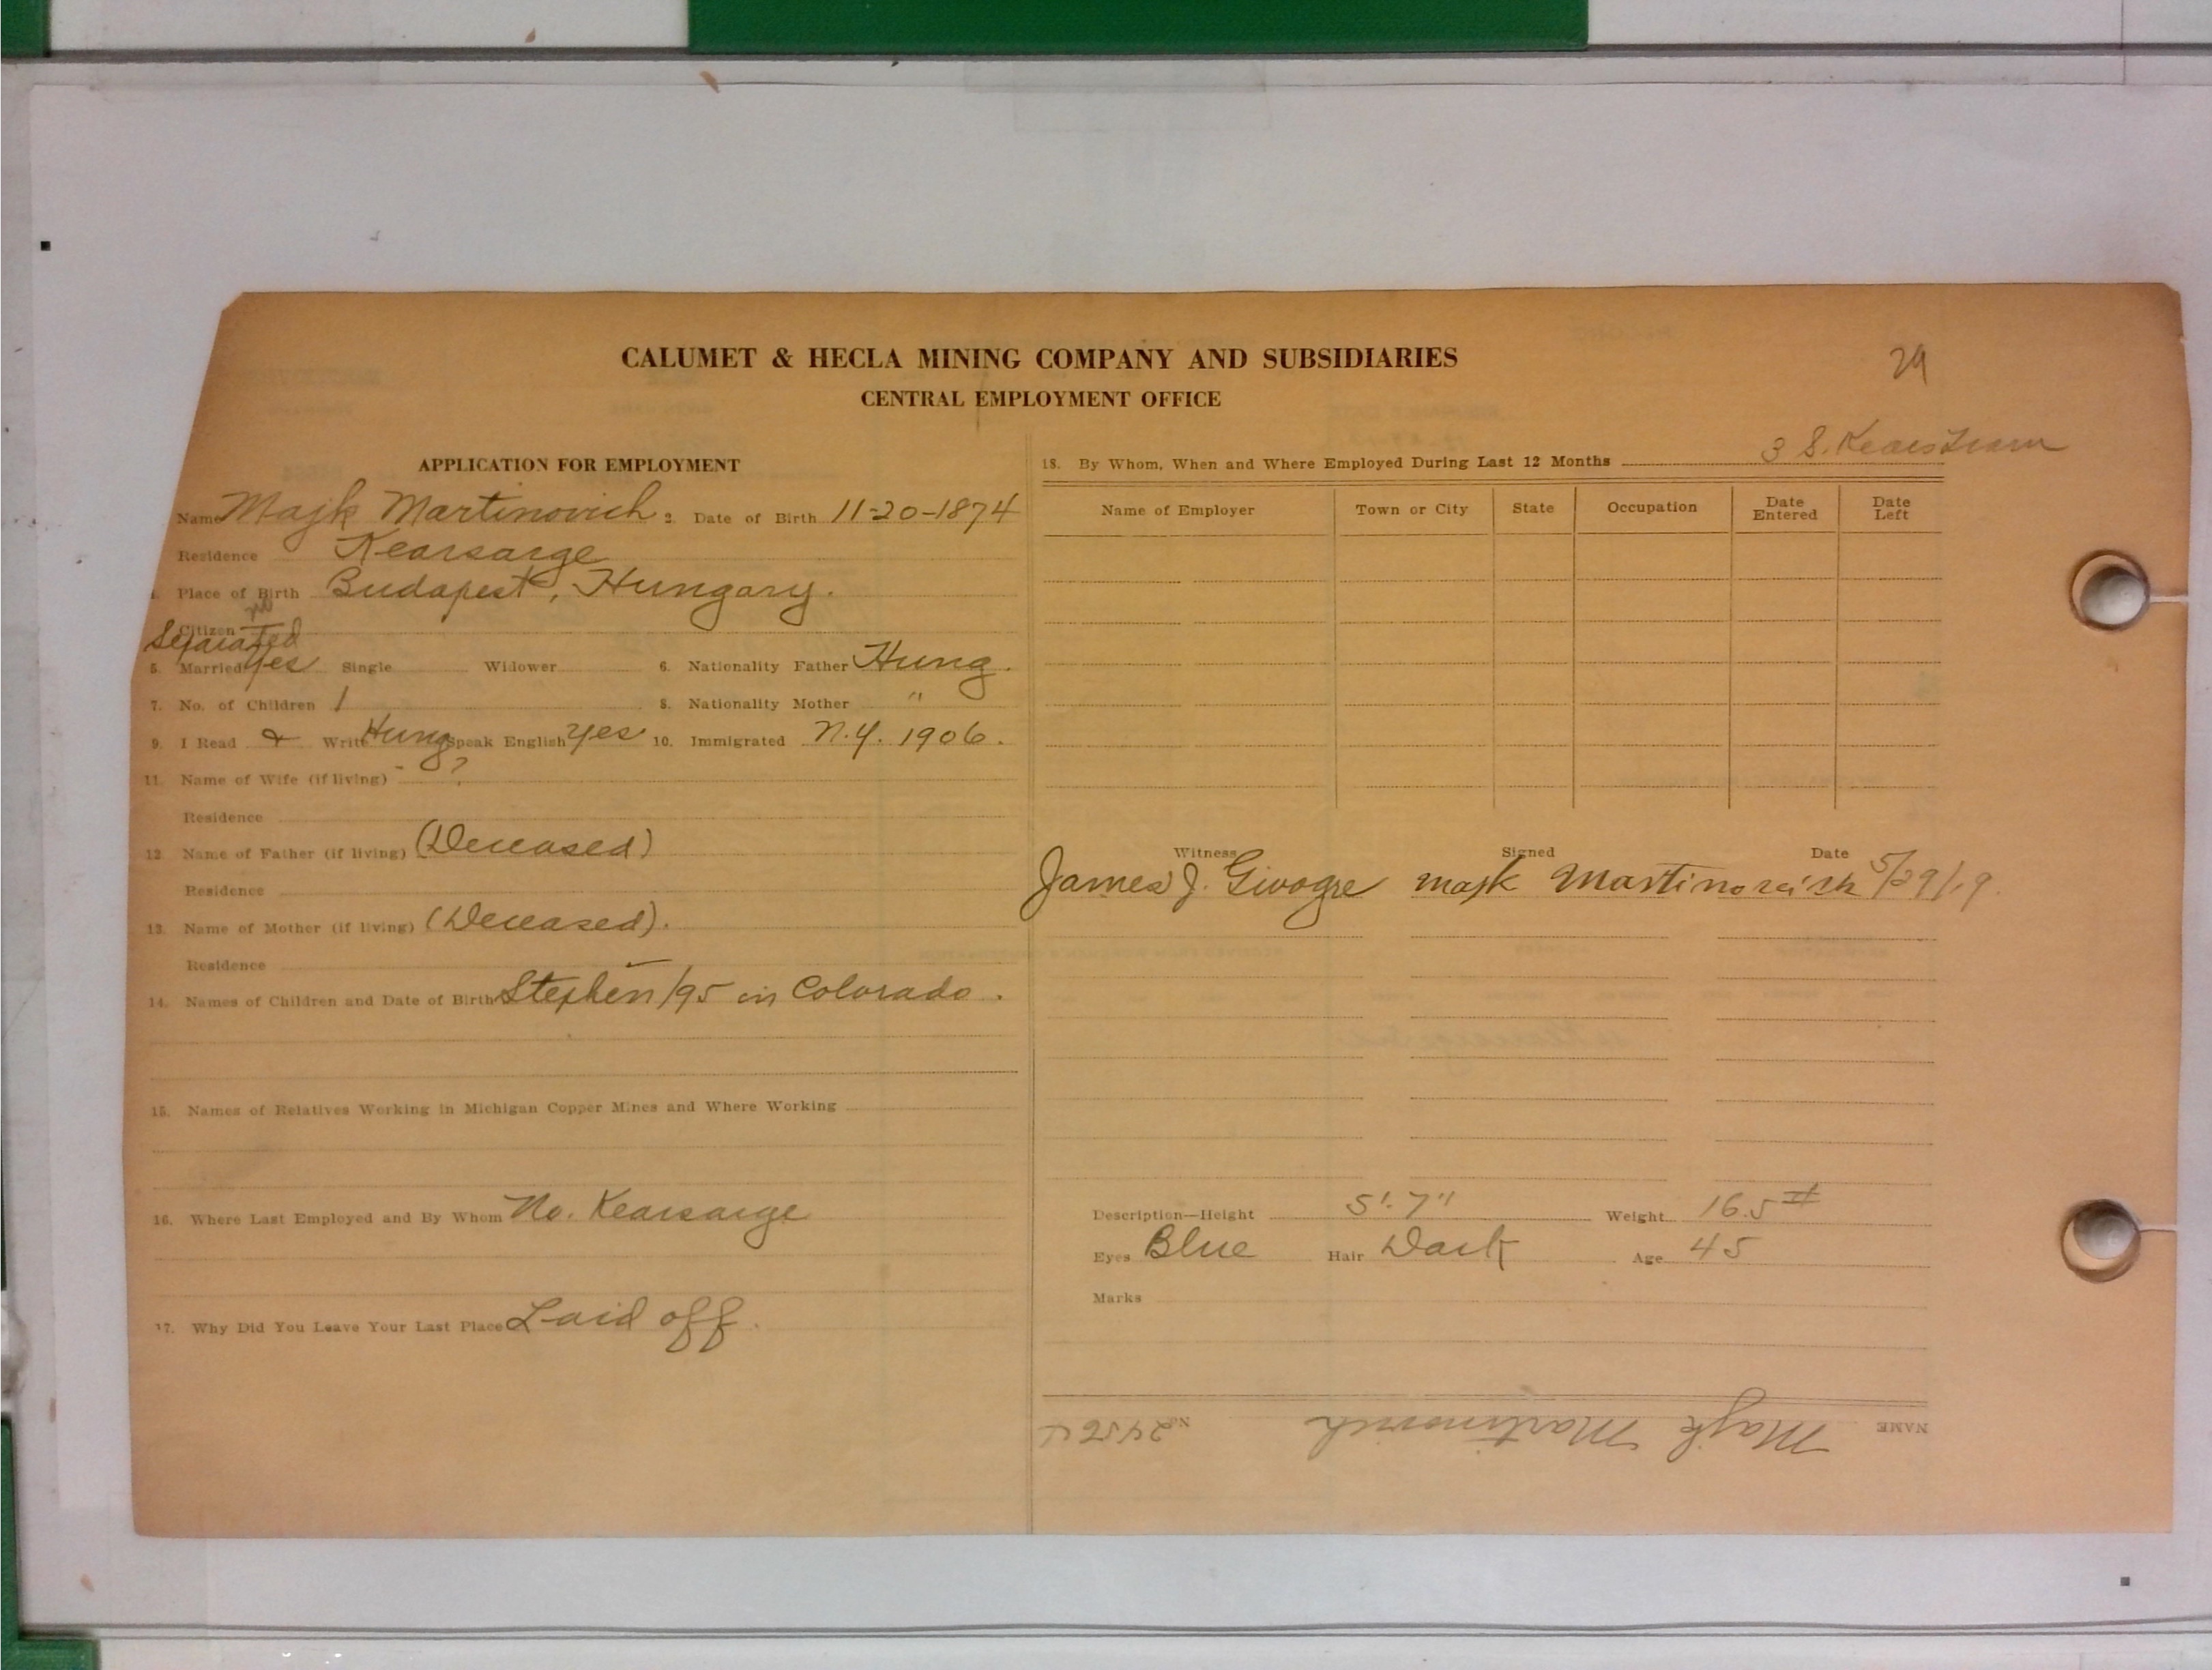 CALUMET & HECLA MINING COMPANY AND SUBSIDIARIES
29
CENTRAL EMPLOYMENT OFFICE
APPLICATION FOR EMPLOYMENT
Name Majk Martinovich 2. Date of Birth 11-20-1874
Residence Kearsarge
Place of Birth Budapest, Hungary.
Citizen no
Separated
5. Married yes Single Widower 6. Nationality Father Hung.
7. No. of Children 1 8. Nationality Mother "
9. I Read & Write Hung Speak English yes 10. Immigrated N.Y. 1906.
11. Name of Wife (if living) - ?
Residence
12. Name of Father (if living) (Deceased)
Residence
13. Name of Mother (if living) (Deceased).
Residence
14. Names of Children and Date of Birth Stephen /95 in Colorado.
15. Names of Relatives Working in Michigan Copper Mines and Where Working
16. Where Last Employed and By Whom No. Kearsarge
17. Why Did You Leave Your Last Place Laid off.
18. By Whom, When and Where Employed During Last 12 Months 3 S. Kears
Name of Employer Town or City State Occupation Date Entered Date Left
Witness Signed Date
James J. majk Martinovich 5/29/19.
Description—Height 5'.7" Weight 165#
Eyes Blue Hair Dark Age 45
Marks
NAME Majk Martinovich No.